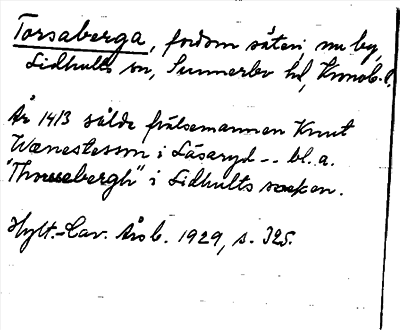 Torsaberga, fordom säteri, nu by,
Lidhults sn, Sunnerbo hd, Kronob. l.
År 1413 sålde frälsemannen Knut
Wænestesson i Låsaryd -- bl. a.
"Thorsebergh" i Lidhults socken.
Hylt.-Cav. Årsb. 1929, s. 325.